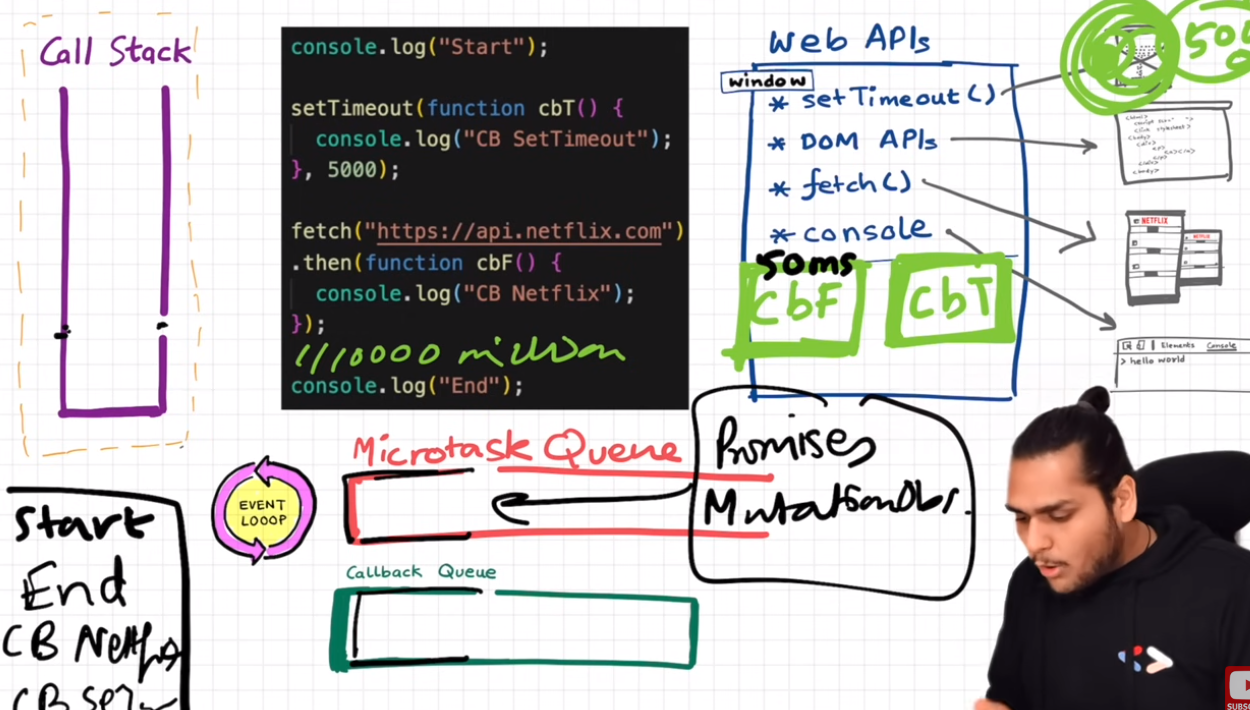 Call Stack
console.log("Start");
setTimeout(function cbT() {
console.log("CB SetTimeout");
}, 5000);
fetch("https://api.netflix.com")
.then(function cbF() {
console.log("CB Netflix");
});
1//10000 million
console.log("End");
Web APIs
window
* setTimeout()
* DOM APIs
* fetch()
* console
50ms
CbF
CbT
NETFLIX
NETFLIX
Elements Console
> hello world
Microtask Queue
Promises
MutationObs.
EVENT
LOOOP
Callback Queue
Start
End
CB
CB